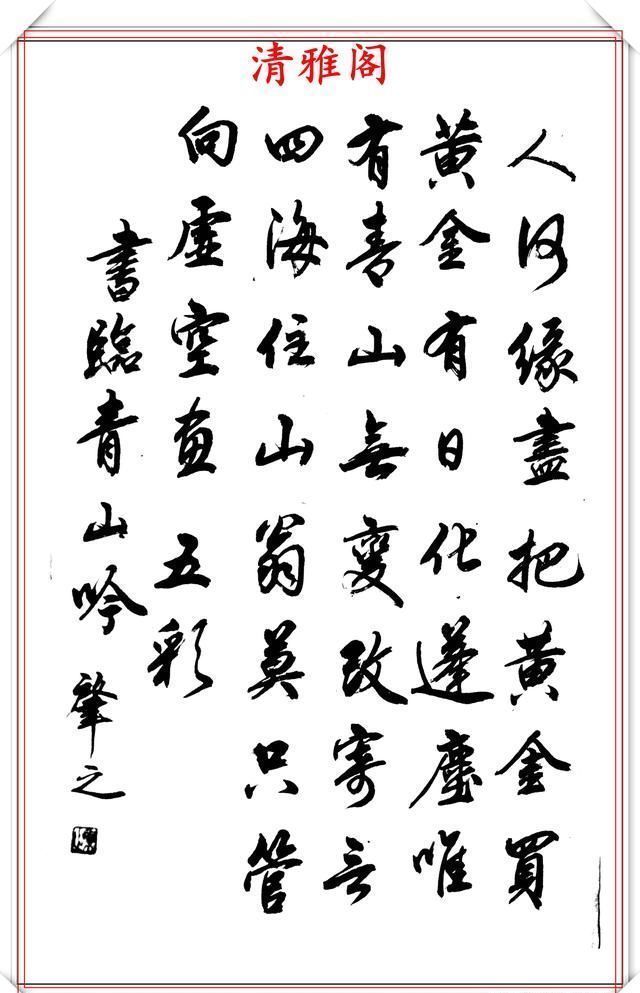 清雅阁
人何緣盡把黄金買
黄金有日化蓬塵唯
有青山無變改寄言
四海住山翁莫只管
向虚空畫五彩
書臨青山吟 肇之